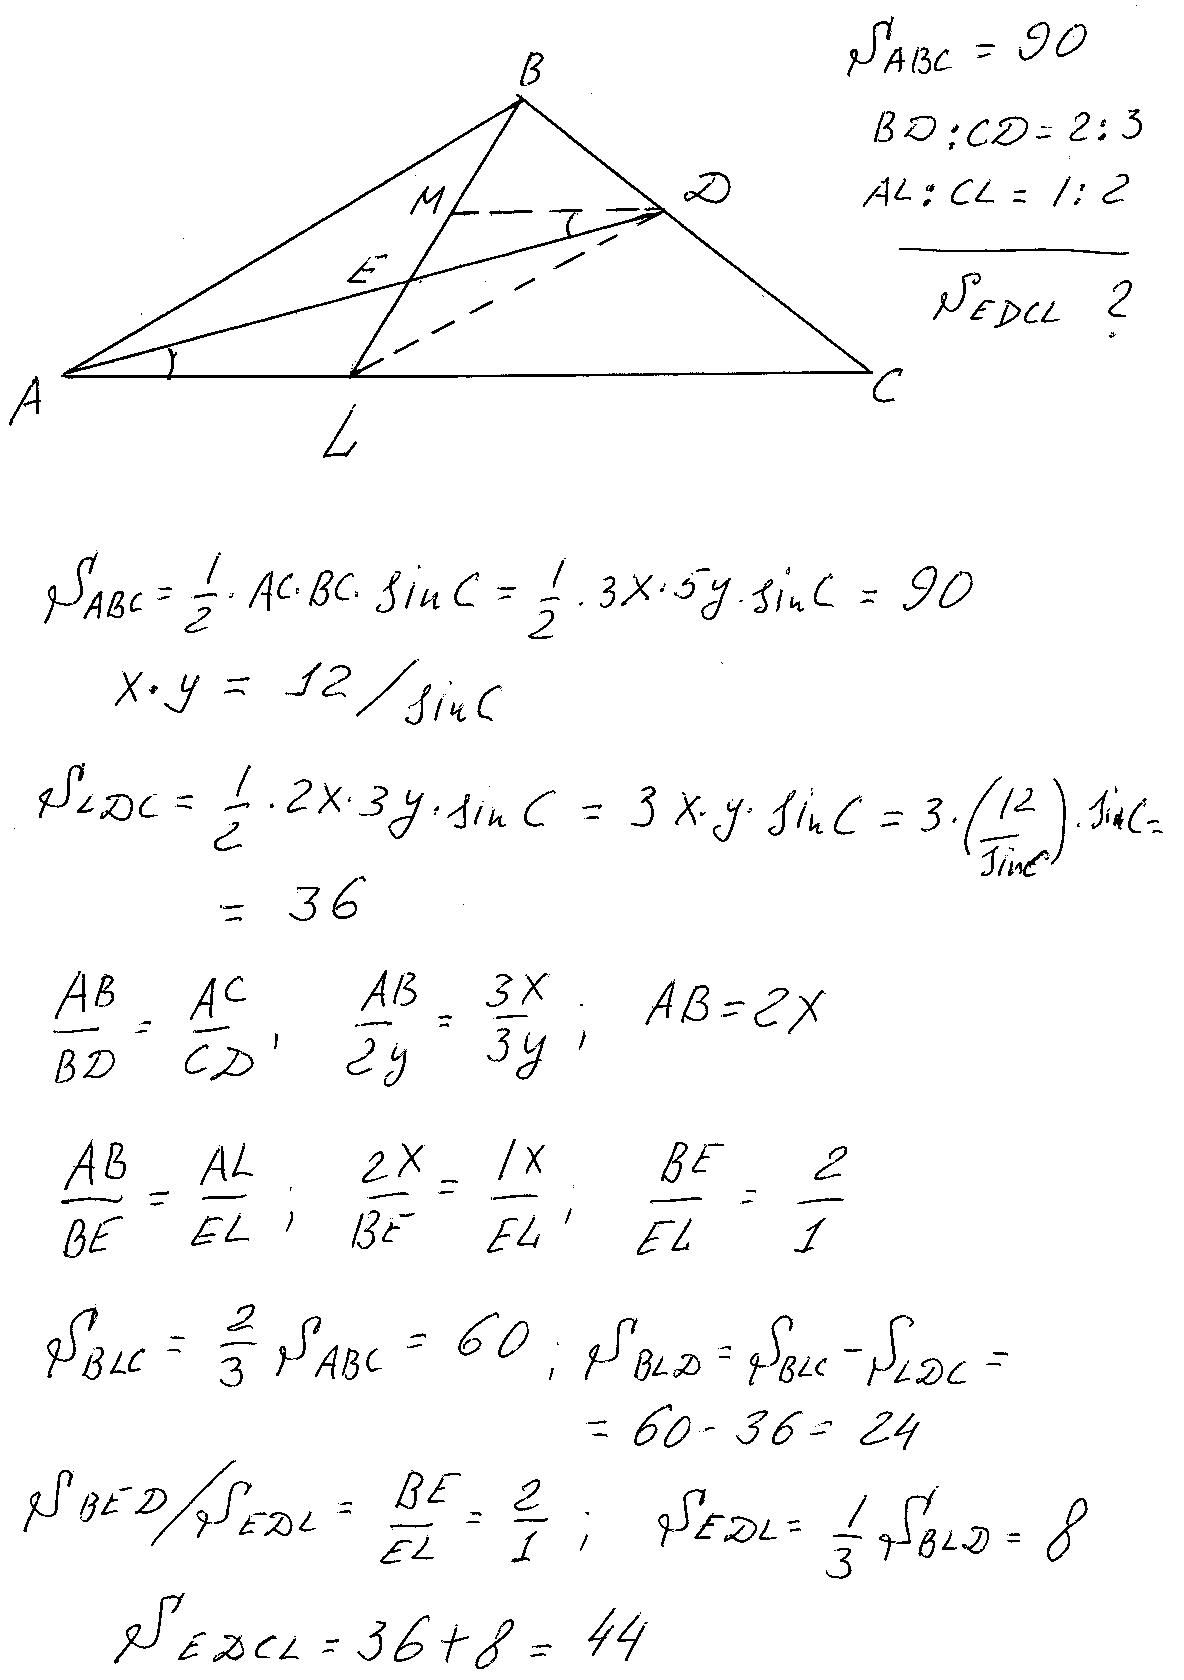 B
S_ABC = 90
BD:CD = 2:3
M
D
AL:CL = 1:2
E
S_EDCL ?
A
L
C
S_ABC = 1/2 · AC · BC · sin C = 1/2 · 3x · 5y · sin C = 90
x · y = 12 / sin C
S_LDC = 1/2 · 2x · 3y · sin C = 3 x · y · sin C = 3 · (12/sin C) · sin C =
= 36
AB/BD = AC/CD, AB/2y = 3x/3y ; AB = 2x
AB/BE = AL/EL ; 2x/BE = 1x/EL ; BE/EL = 2/1
S_BLC = 2/3 S_ABC = 60 ; S_BLD = S_BLC - S_LDC =
= 60 - 36 = 24
S_BED / S_EDL = BE/EL = 2/1 ; S_EDL = 1/3 S_BLD = 8
S_EDCL = 36 + 8 = 44